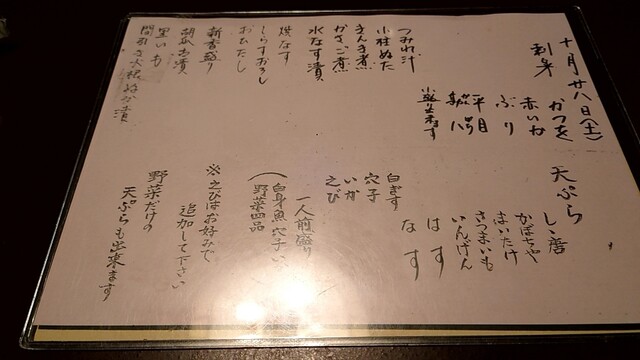 十月廿八日(土)
刺身
かつを
赤いか
ぶり
平目
小盛出来ます
つみれ汁
小柱ぬた
きんき煮
かさご煮
水なす漬
焼なす
しらすおろし
おひたし
新香盛り
胡瓜ぬか漬
里いも
間引き大根ぬか漬
天ぷら
しし唐
かぼちゃ
まいたけ
さつまいも
いんげん
はす
なす
白ぎす
穴子
いか
えび
一人前盛り
(白身魚、穴子、いか
野菜四品
※えびはお好みで
追加して下さい
野菜だけの
天ぷらも出来ます